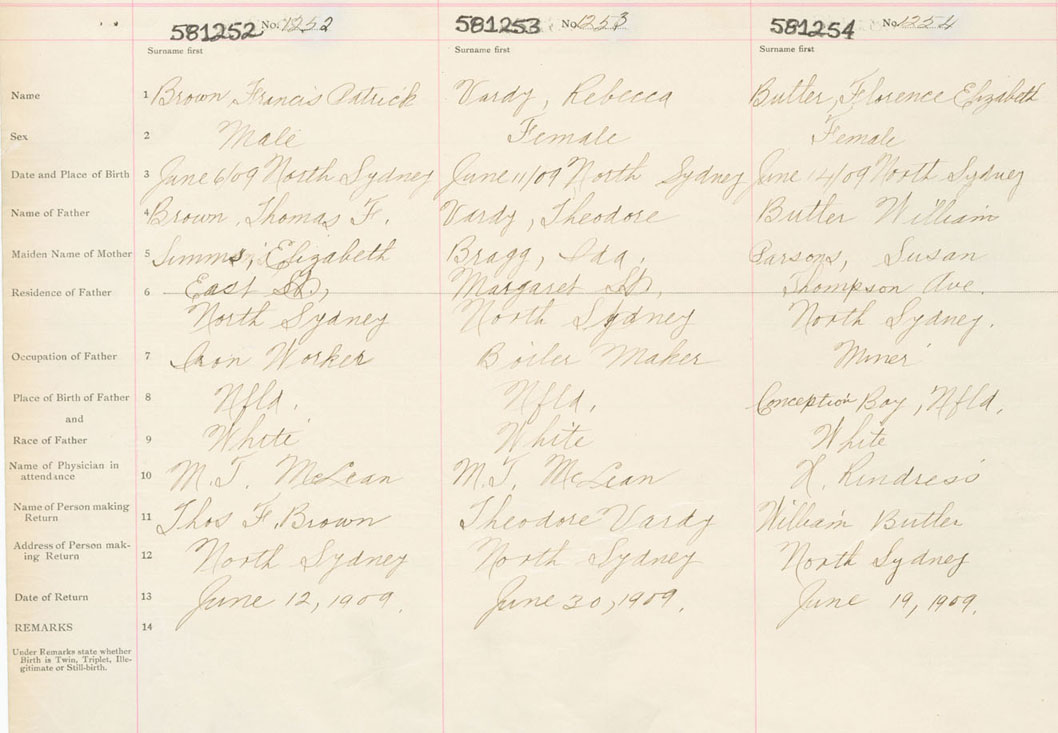 581252 No. 1252 581253 No. 1253 581254 No. 1254
Surname first Surname first Surname first
Name 1 Brown, Francis Patrick Vardy, Rebecca Butler, Florence Elizabeth
Sex 2 Male Female Female
Date and Place of Birth 3 June 6/09 North Sydney June 11/09 North Sydney June 14/09 North Sydney
Name of Father 4 Brown, Thomas F. Vardy, Theodore Butler William
Maiden Name of Mother 5 Simms, Elizabeth Bragg, Ida, Parsons, Susan
Residence of Father 6 East St, Margaret St, Thompson Ave.
North Sydney North Sydney North Sydney.
Occupation of Father 7 Iron Worker Boiler Maker Miner
Place of Birth of Father 8 Nfld, Nfld, Conception Bay, Nfld,
and
Race of Father 9 White White White
Name of Physician in
attendance 10 M.T. McLean M.T. McLean H. Rindress
Name of Person making
Return 11 Thos F. Brown Theodore Vardy William Butler
Address of Person mak-
ing Return 12 North Sydney North Sydney North Sydney
Date of Return 13 June 12, 1909. June 30, 1909. June 19, 1909.
REMARKS 14
Under Remarks state whether
Birth is Twin, Triplet, Ille-
gitimate or Still-birth.